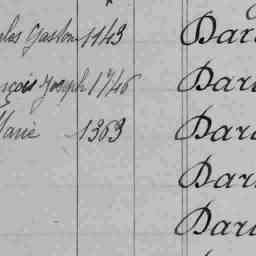 les Gaston 1143 Dar
nçois Joseph 1746 Dar
Marie 1363 Dar
Dar
Dar